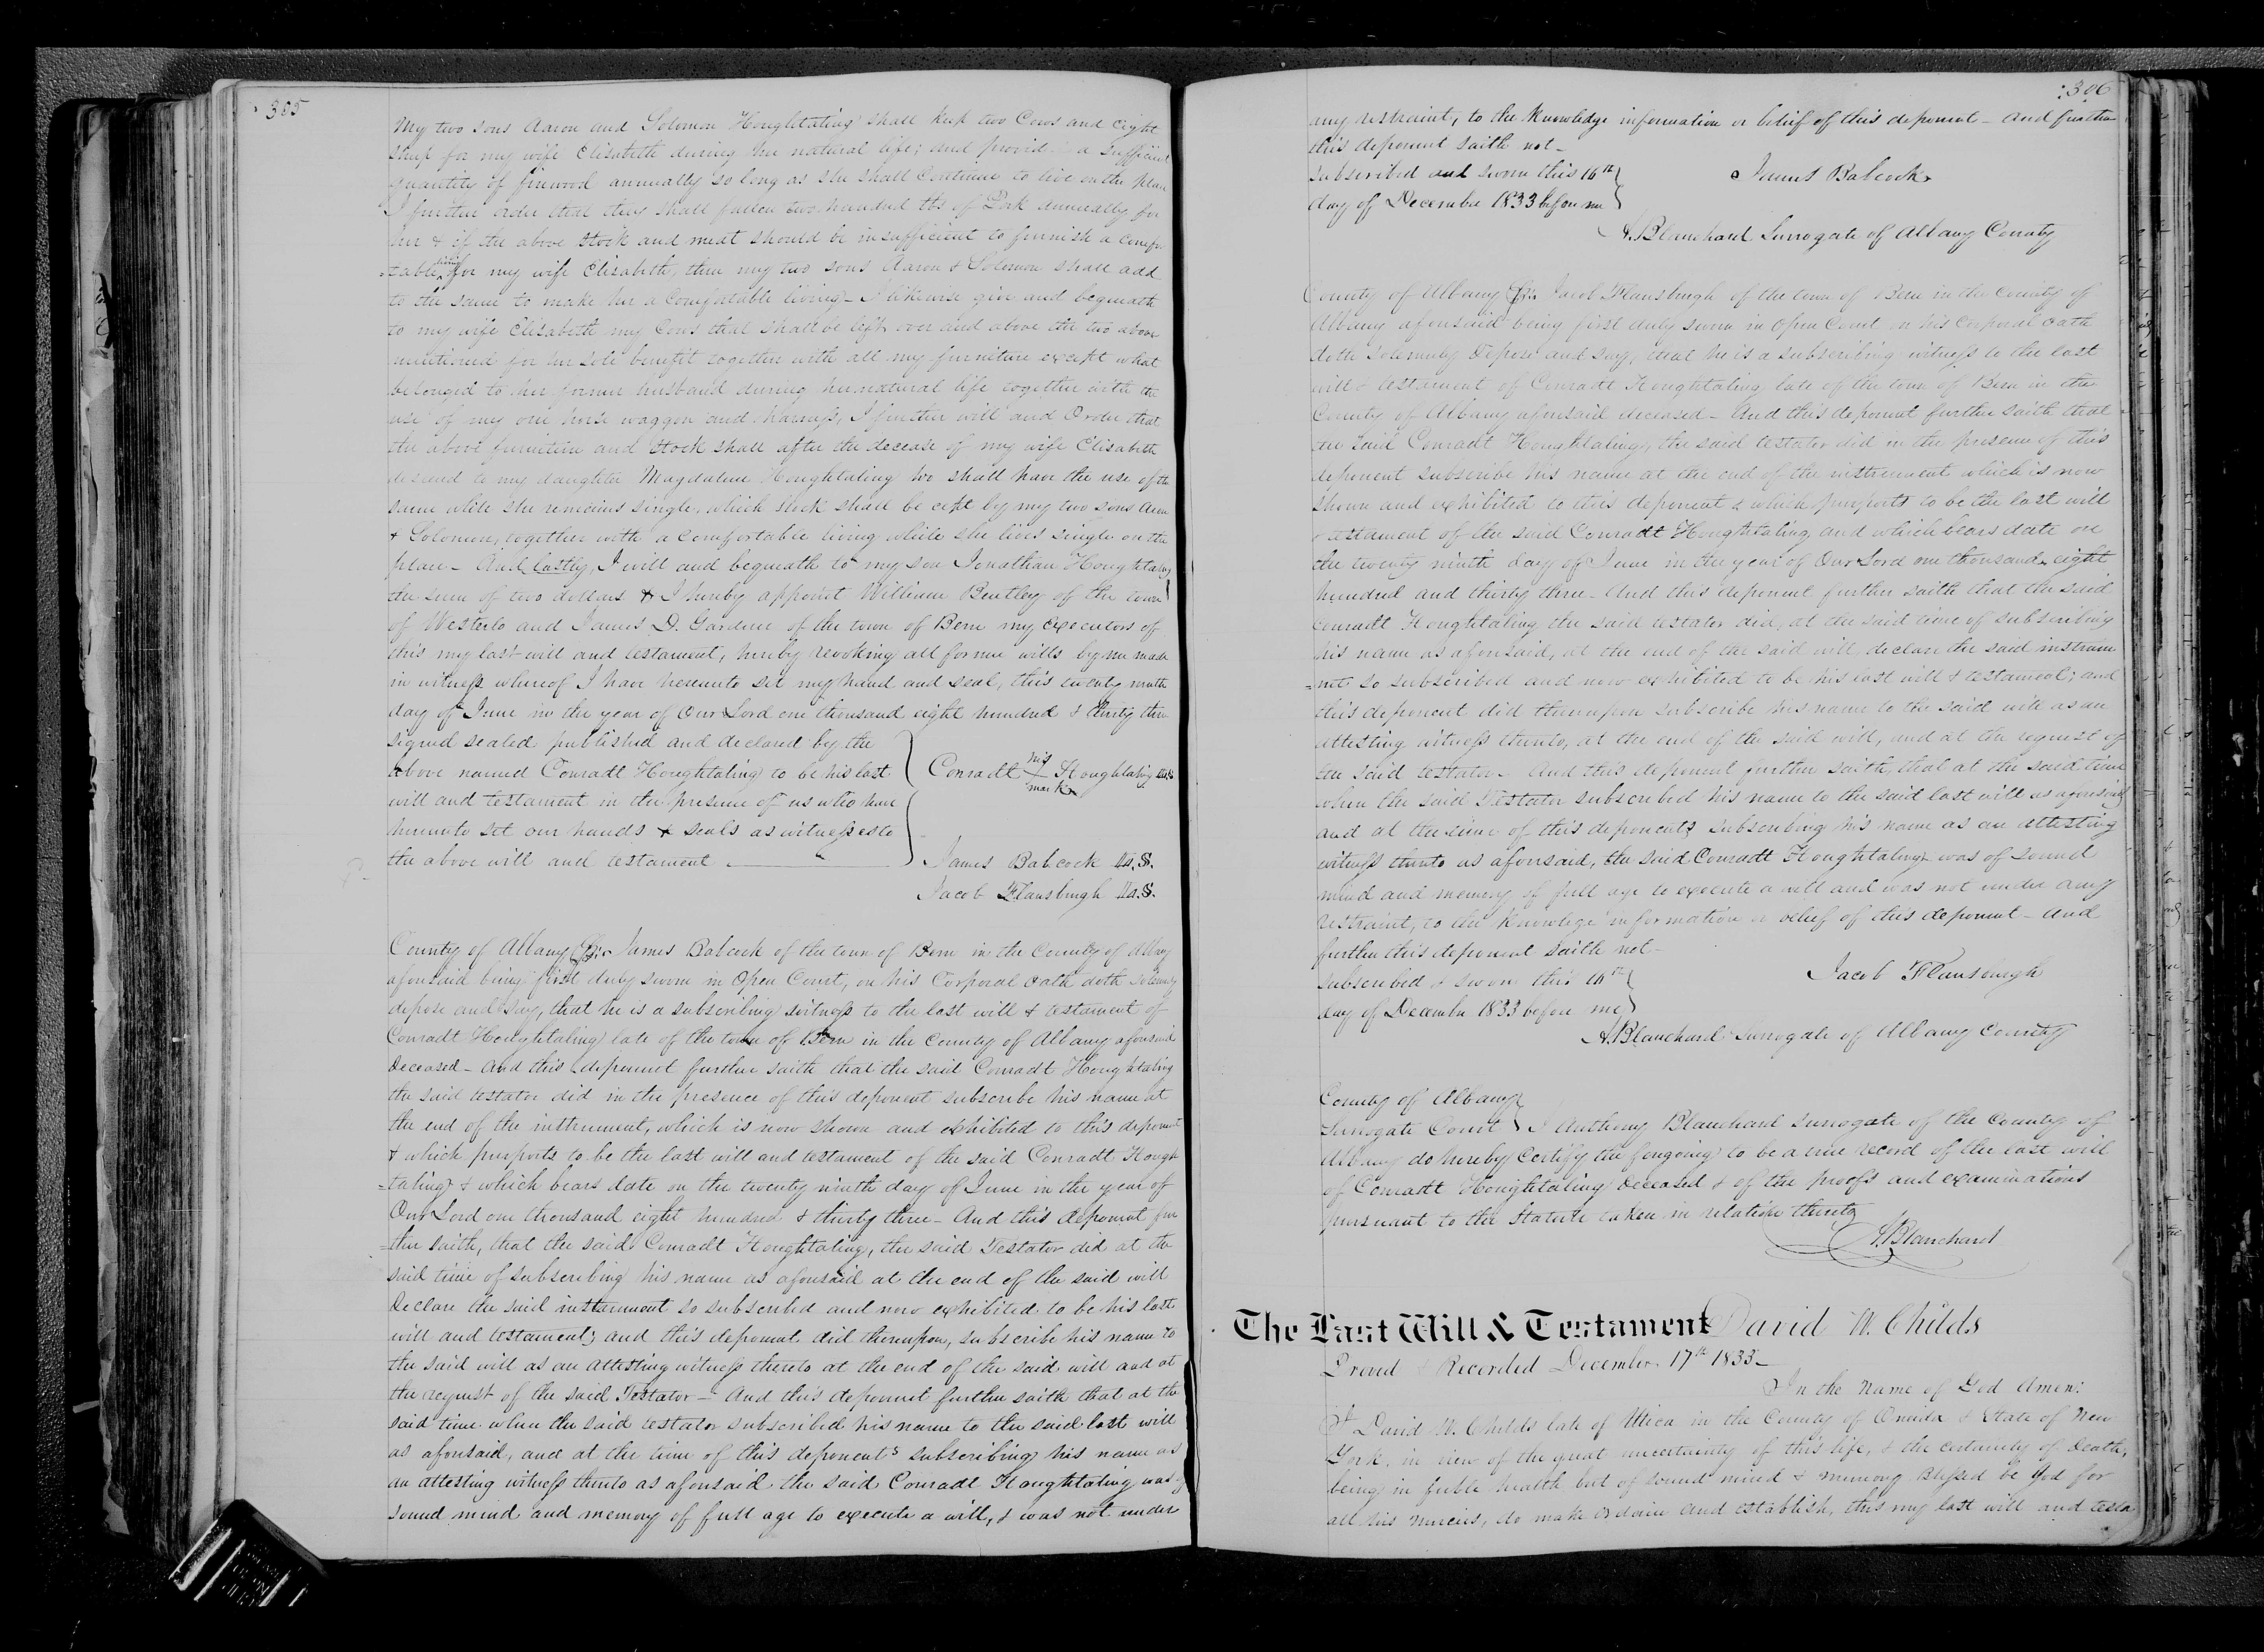 305
My two sons Aaron and Solomon Houghtaling shall keep two Cows and eight
sheep for my wife Elisabeth during her natural life; and provide a sufficient
quantity of firewood annually so long as she shall Continue to live on the place
I further order that they shall fatten two hundred lbs of Pork annually for
her & if the above stock and meat should be insufficient to furnish a comfor
=table living for my wife Elisabeth, then my two sons Aaron & Solomon shall add
to the same to make her a Comfortable living_ I likewise give and bequeath
to my wife Elisabeth my Cows that shall be left over and above the two above
mentioned for her sole benefit together with all my furniture except what
belonged to her former husband during her natural life together with the
use of my one horse waggon and harness, I further will and Order that
the above furniture and stock shall after the decease of my wife Elisabeth
desend to my daughter Magdalene Houghtaling who shall have the use of the
same while she remains single, which stock shall be cept by my two sons Aaron
& Solomon, together with a comfortable living while she lives single on the
place_ And lastly, I will and bequeath to my son Jonathan Houghtaling
the sum of two dollars & I hereby appoint William Bentley of the town
of Westerlo and James D. Gardner of the town of Bern my executors of
this my last will and testament, hereby revoking all former wills by me made
in witness whereof I have hereunto set my hand and seal, this twenty ninth
day of June in the year of Our Lord one thousand eight hundred & thirty three
signed sealed published and declared by the
above named Conradt Houghtaling to be his last
will and testament in the presence of us who have
hereunto set our hands & seals as witnesses to
the above will and testament
Conradt his mark Houghtaling L.S.
James Babcock L.S.
Jacob Flansburgh L.S.
County of Albany Ss: James Babcock of the town of Bern in the County of Albany
aforesaid being first duly sworn in Open Court, on his Corporal oath doth solemnly
depose and say, that he is a subscribing witness to the last will & testament of
Conradt Houghtaling late of the town of Bern in the County of Albany aforesaid
Deceased_ And this deponent further saith that the said Conradt Houghtaling
the said testator did in the presence of this deponent subscribe his name at
the end of the instrument, which is now shown and exhibited to this deponent
& which purports to be the last will and testament of the said Conradt Hough
=taling & which bears date on the twenty ninth day of June in the year of
Our Lord one thousand eight hundred & thirty three_ And this deponent fur
=ther saith, that the said Conradt Houghtaling, the said Testator did at the
said time of subscribing his name as aforesaid at the end of the said will
Declare the said instrument so subscribed and now exhibited to be his last
will and testament; and this deponent did thereupon, subscribe his name to
the said will as an attesting witness thereto at the end of the said will and at
the request of the said Testator_ And this deponent further saith that at the
said time when the said testator subscribed his name to the said last will
as aforesaid, and at the time of this deponents subscribing his name as
an attesting witness thereto as aforesaid the said Conradt Houghtaling was of
sound mind and memory of full age to execute a will, & was not under
306
any restraint, to the knowledge information or belief of this deponent_ And further
this deponent saith not_
subscribed and sworn this 16th
day of December 1833 before me
James Babcock
A. Blanchard Surrogate of Albany County
County of Albany Ss: Jacob Flansburgh of the town of Bern in the County of
Albany aforesaid being first duly sworn in Open Court on his Corporal oath
doth solemnly Depose and say, that he is a subscribing witness to the last
will & testament of Conradt Houghtaling late of the town of Bern in the
County of Albany aforesaid deceased_ And this deponent further saith that
the said Conradt Houghtaling, the said testator did in the presence of this
deponent subscribe his name at the end of the instrument which is now
shown and exhibited to this deponent & which purports to be the last will
& testament of the said Conradt Houghtaling and which bears date on
the twenty ninth day of June in the year of Our Lord one thousand eight
hundred and thirty three_ And this deponent further saith that the said
Conradt Houghtaling the said testator did, at the said time of subscribing
his name as aforesaid, at the end of the said will, declare the said instrum
=ent so subscribed and now exhibited to be his last will & testament; and
this deponent did thereupon subscribe his name to the said will as an
attesting witness thereto, at the end of the said will, and at the request of
the said testator_ And this deponent further saith, that at the said time
when the said Testator subscribed his name to the said last will as aforesaid
and at the time of this deponents subscribing his name as an attesting
witness thereto as aforesaid, the said Conradt Houghtaling was of sound
mind and memory of full age to execute a will and was not under any
restraint, to the knowlege information or belief of this deponent_ And
further this deponent saith not_
subscribed & sworn this 16th
day of December 1833 before me
Jacob Flansburgh
A. Blanchard Surrogate of Albany County
County of Albany
Surrogate Court I Anthony Blanchard surrogate of the County of
Albany do hereby Certify the foregoing to be a true record of the last will
of Conradt Houghtaling Deceased & of the proofs and examinations
pursuant to the Statute taken in relation thereto
A. Blanchard
The Last Will & Testament David W. Childs
Proved & Recorded December 17th 1833_
In the Name of God Amen:
I David W. Childs late of Utica in the County of Oneida & State of New
York, in view of the great uncertainty of this life, & the certainty of Death,
being in feeble health but of sound mind & memory Blessed be God for
all his mercies, do make ordain and establish, this my last will and testa